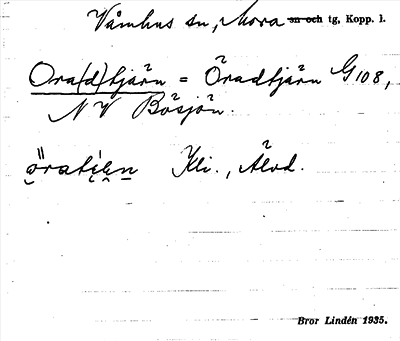 Våmhus sn, Mora sn och tg, Kopp. l.
Ora(d)tjärn = Öradtjärn G108,
NV Bösjön.
öratjẹn Kli., Älvd.
Bror Lindén 1935.